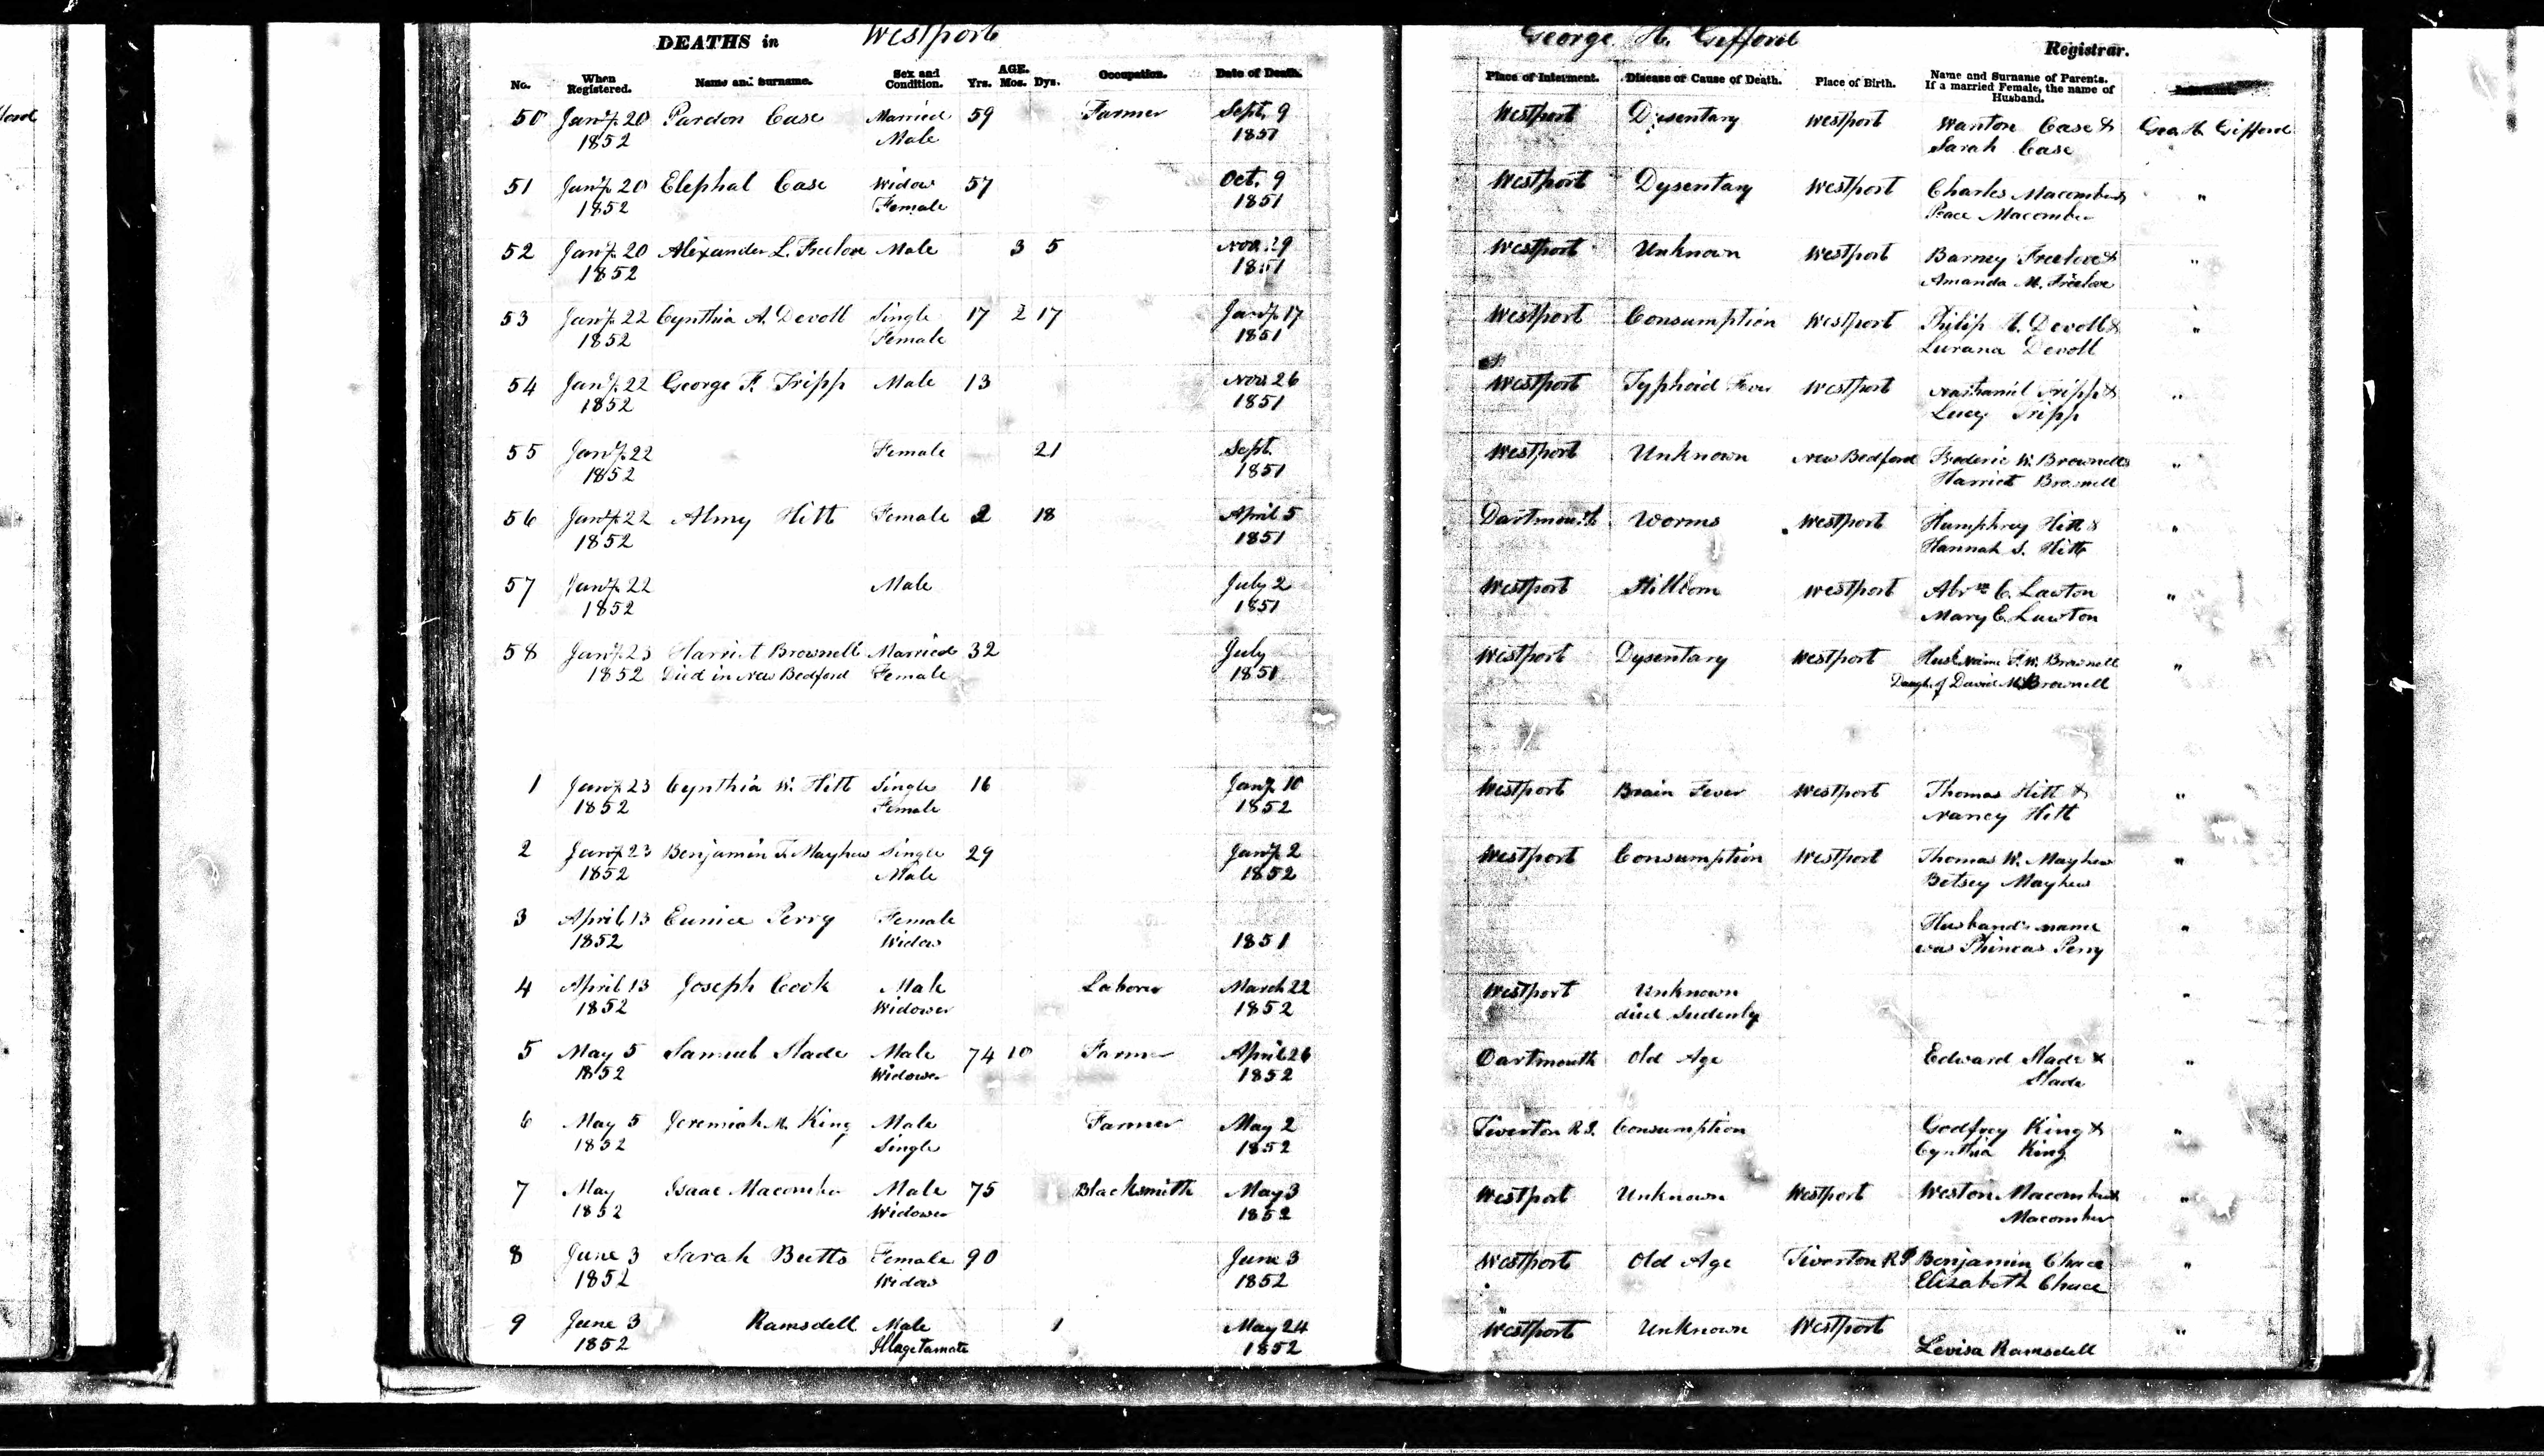 DEATHS in Westport George H. Gifford Registrar.
No. When Registered. Name and Surname. Sex and Condition. AGE. Yrs. Mos. Dys. Occupation. Date of Death. Place of Interment. Disease or Cause of Death. Place of Birth. Name and Surname of Parents. If a married Female, the name of Husband.
50 Jan'y 20 Pardon Case Married 59 Farmer Sept. 9 Westport Disentary Westport Wanton Case & Geo H. Gifford
1852 Male 1851 Sarah Case
51 Jan'y 20 Elephal Case Widow 57 Oct. 9 Westport Dysentary Westport Charles Macomber &
1852 Female 1851 Peace Macomber "
52 Jan'y 20 Alexander L. Freelove Male 3 5 Nov. 29 Westport Unknown Westport Barney Freelove & "
1852 1851 Amanda M. Freelove
53 Jan'y 22 Cynthia A. Devoll Single 17 2 17 Jan'y 17 Westport Consumption Westport Philip H. Devoll & "
1852 Female 1851 Lurana Devoll
54 Jan'y 22 George F. Tripp Male 13 Nov. 26 Westport Typhoid Fever Westport Nathaniel Tripp & "
1852 1851 Lucy Tripp
55 Jan'y 22 Female 21 Sept. Westport Unknown New Bedford Frederic W. Brownell & "
1852 1851 Harriet Brownell
56 Jan'y 22 Almy Hitt Female 2 18 April 5 Dartmouth Worms Westport Humphrey Hitt & "
1852 1851 Hannah S. Hitt
57 Jan'y 22 Male July 2 Westport Stillborn Westport Abrm C. Lawton "
1852 1851 Mary C. Lawton
58 Jan'y 23 Harriet Brownell Married 32 July Westport Dysentary Westport Husb Name F. W. Brownell "
1852 Died in New Bedford Female 1851 Daugh. of David M. Brownell
1 Jan'y 23 Cynthia W. Hitt Single 16 Jan'y 10 Westport Brain Fever Westport Thomas Hitt & "
1852 Female 1852 Nancy Hitt
2 Jan'y 23 Benjamin T. Mayhew Single 29 Jan'y 2 Westport Consumption Westport Thomas W. Mayhew "
1852 Male 1852 Betsey Mayhew
3 April 13 Eunice Perry Female Husband's name "
1852 Widow 1851 was Phineas Perry
4 April 13 Joseph Cook Male Laborer March 22 Westport Unknown "
1852 Widower 1852 died Sudenly
5 May 5 Samuel Slade Male 74 10 Farmer April 26 Dartmouth Old Age Edward Slade & "
1852 Widower 1852 Slade
6 May 5 Jeremiah M. King Male Farmer May 2 Tiverton R.I. Consumption Godfrey King & "
1852 Single 1852 Cynthia King
7 May Isaac Macomber Male 75 Blacksmith May 3 Westport Unknown Westport Weston Macomber & "
1852 Widower 1852 Macomber
8 June 3 Sarah Butts Female 90 June 3 Westport Old Age Tiverton R.I. Benjamin Chace "
1852 Widow 1852 Elizabeth Chace
9 June 3 Ramsdell Male 1 May 24 Westport Unknown Westport "
1852 Illagetamate 1852 Levisa Ramsdell